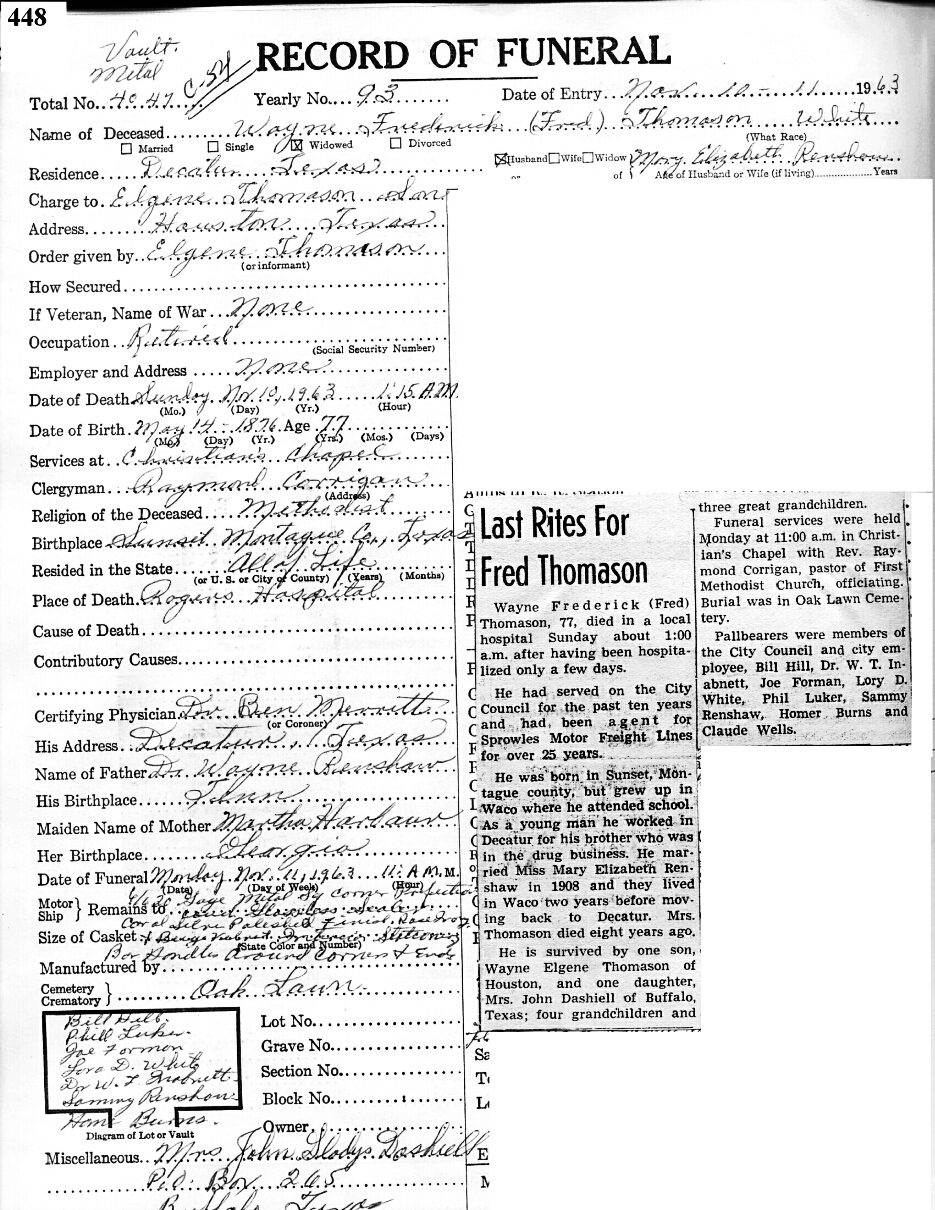 448
Vault.
Metal
C-54
RECORD OF FUNERAL
Total No. 4047 Yearly No. 93 Date of Entry Nov. 10 - 11 1963
Name of Deceased Wayne Frederick (Fred) Thomason White
(What Race)
Married Single Widowed Divorced
Husband Wife Widow of Mary Elizabeth Renshaw
or
Residence Decatur Texas Age of Husband or Wife (if living) Years
Charge to Elgene Thomason Son
Address Houston Texas
Order given by Elgene Thomason
(or informant)
How Secured
If Veteran, Name of War None
Occupation Retired
(Social Security Number)
Employer and Address None
Date of Death Sunday Nov. 10, 1963 1:15 A.M.
(Mo.) (Day) (Yr.) (Hour)
Date of Birth May 14 - 1876 Age 77
(Mo.) (Day) (Yr.) (Yrs.) (Mos.) (Days)
Services at Christian's Chapel
Clergyman Raymond Corrigan
(Address)
Religion of the Deceased Methodist
Birthplace Sunset Montague Co., Texas
Resided in the State All of Life
(or U. S. or City of County) (Years) (Months)
Place of Death Rogers Hospital
Cause of Death
Contributory Causes
Certifying Physician Dr. Ben Merrett
(or Coroner)
His Address Decatur, Texas
Name of Father Dr Wayne Renshaw
His Birthplace Tenn
Maiden Name of Mother Martha Harbaur
Her Birthplace Georgia
Date of Funeral Monday Nov. 11, 1963 11: A M.M.
(Date) (Day of Week) (Hour)
Motor Ship } Remains to Gage Metal Sq Corner
Size of Casket Silver Polished Finish
(State Color and Number)
Bar Handles Around Corners & Ends
Manufactured by
Cemetery Crematory } Oak Lawn
Bill Hill.
Phill Luker.
Joe Forman
Lora D. White
Dr W. T Inabnett
Sammy Renshaw
Home Burns.
Diagram of Lot or Vault
Lot No.
Grave No.
Section No.
Block No.
Owner
Miscellaneous Mrs John Gladys Dashiell
P.O. Box 265
Buffalo, Texas
Last Rites For
Fred Thomason
Wayne Frederick (Fred)
Thomason, 77, died in a local
hospital Sunday about 1:00
a.m. after having been hospita-
lized only a few days.
He had served on the City
Council for the past ten years
and had been agent for
Sprowles Motor Freight Lines
for over 25 years.
He was born in Sunset, Mon-
tague county, but grew up in
Waco where he attended school.
As a young man he worked in
Decatur for his brother who was
in the drug business. He mar-
ried Miss Mary Elizabeth Ren-
shaw in 1908 and they lived
in Waco two years before mov-
ing back to Decatur. Mrs.
Thomason died eight years ago.
He is survived by one son,
Wayne Elgene Thomason of
Houston, and one daughter,
Mrs. John Dashiell of Buffalo,
Texas; four grandchildren and
three great grandchildren.
Funeral services were held
Monday at 11:00 a.m. in Christ-
ian's Chapel with Rev. Ray-
mond Corrigan, pastor of First
Methodist Church, officiating.
Burial was in Oak Lawn Ceme-
tery.
Pallbearers were members of
the City Council and city em-
ployee, Bill Hill, Dr. W. T. In-
abnett, Joe Forman, Lory D.
White, Phil Luker, Sammy
Renshaw, Homer Burns and
Claude Wells.